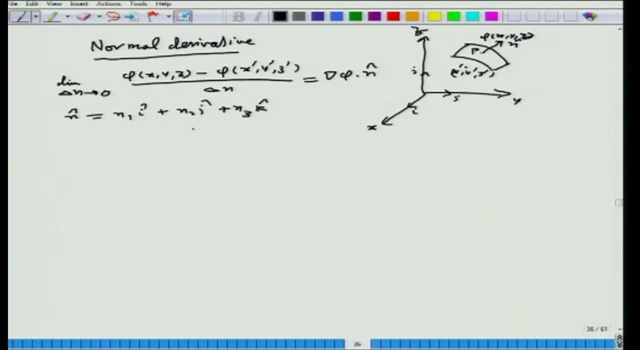 File Edit View Insert Actions Tools Help
Normal derivative
lim Δn→0 φ(x,y,z) − φ(x',y',z') / Δn = ∇φ·n̂
n̂ = n₁ î + n₂ ĵ + n₃ k̂
z
φ(x,y,z)
n
P
(x',y',z')
j
y
i
x
36/61
36